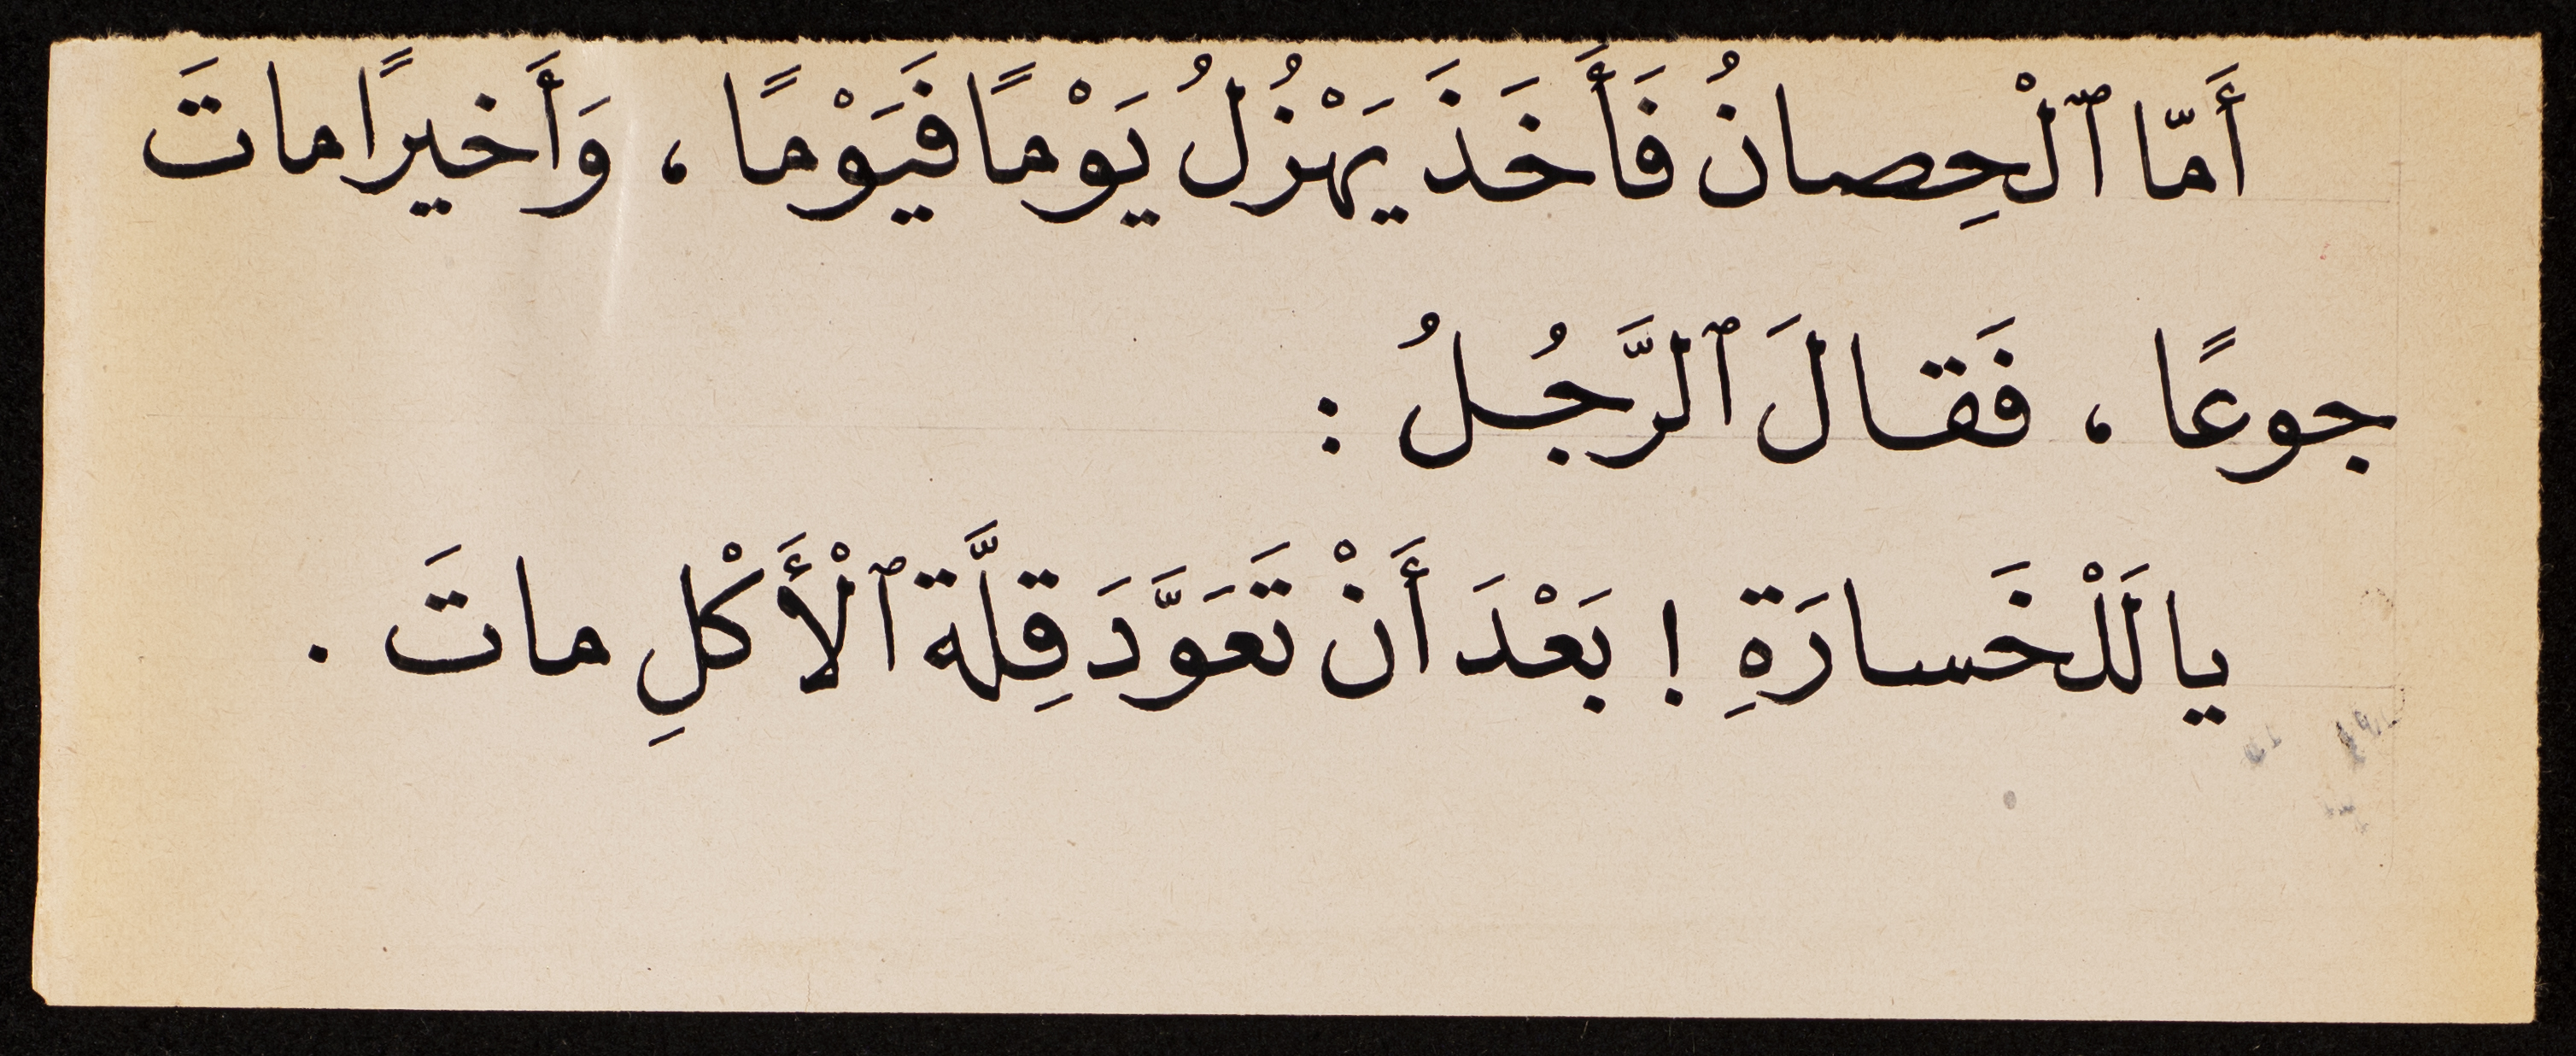 أَمّا ٱلْحِصانُ فَأَخَذَ يَهْزُلُ يَوْمًا فَيَوْمًا ، وَأَخيرًا ماتَ
جوعًا ، فَقالَ ٱلرَّجُلُ :
يا لَلْخَسارَةِ ! بَعْدَ أَنْ تَعَوَّدَ قِلَّةَ ٱلْأَكْلِ ماتَ .